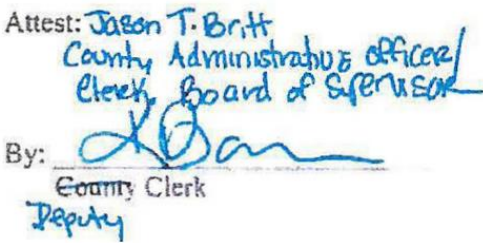 Attest: Jason T. Britt
County Administrative officer/
Clerk, Board of Supervisor
By:
County Clerk
Deputy